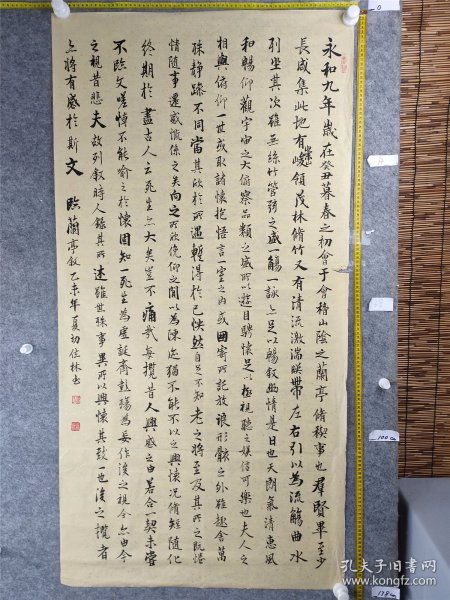 永和九年歲在癸丑暮春之初會于會稽山陰之蘭亭脩稧事也羣賢畢至少
長咸集此地有崇峻領茂林脩竹又有清流激湍暎帶左右引以為流觴曲水
列坐其次雖無絲竹管弦之盛一觴一詠亦足以暢叙幽情是日也天朗氣清惠風
和暢仰觀宇宙之大俯察品類之盛所以遊目騁懷足以極視聽之娛信可樂也夫人之
相與俯仰一世或取諸懷抱悟言一室之內或因寄所託放浪形骸之外雖趣舍萬
殊静躁不同當其欣於所遇暫得於己怏然自足不知老之將至及其所之既惓
情隨事遷感慨係之矣向之所欣俛仰之間以為陳迹猶不能不以之興懷況脩短隨化
終期於盡古人云死生亦大矣豈不痛哉每攬昔人興感之由若合一契未嘗
不臨文嗟悼不能喻之於懷固知一死生為虛誕齊彭殤為妄作後之視今亦由今
之視昔悲夫故列叙時人錄其所述雖世殊事異所以興懷其致一也後之攬者
亦將有感於斯文 臨蘭亭叙乙未年夏初 林書
0
100cm
138cm
孔夫子旧书网